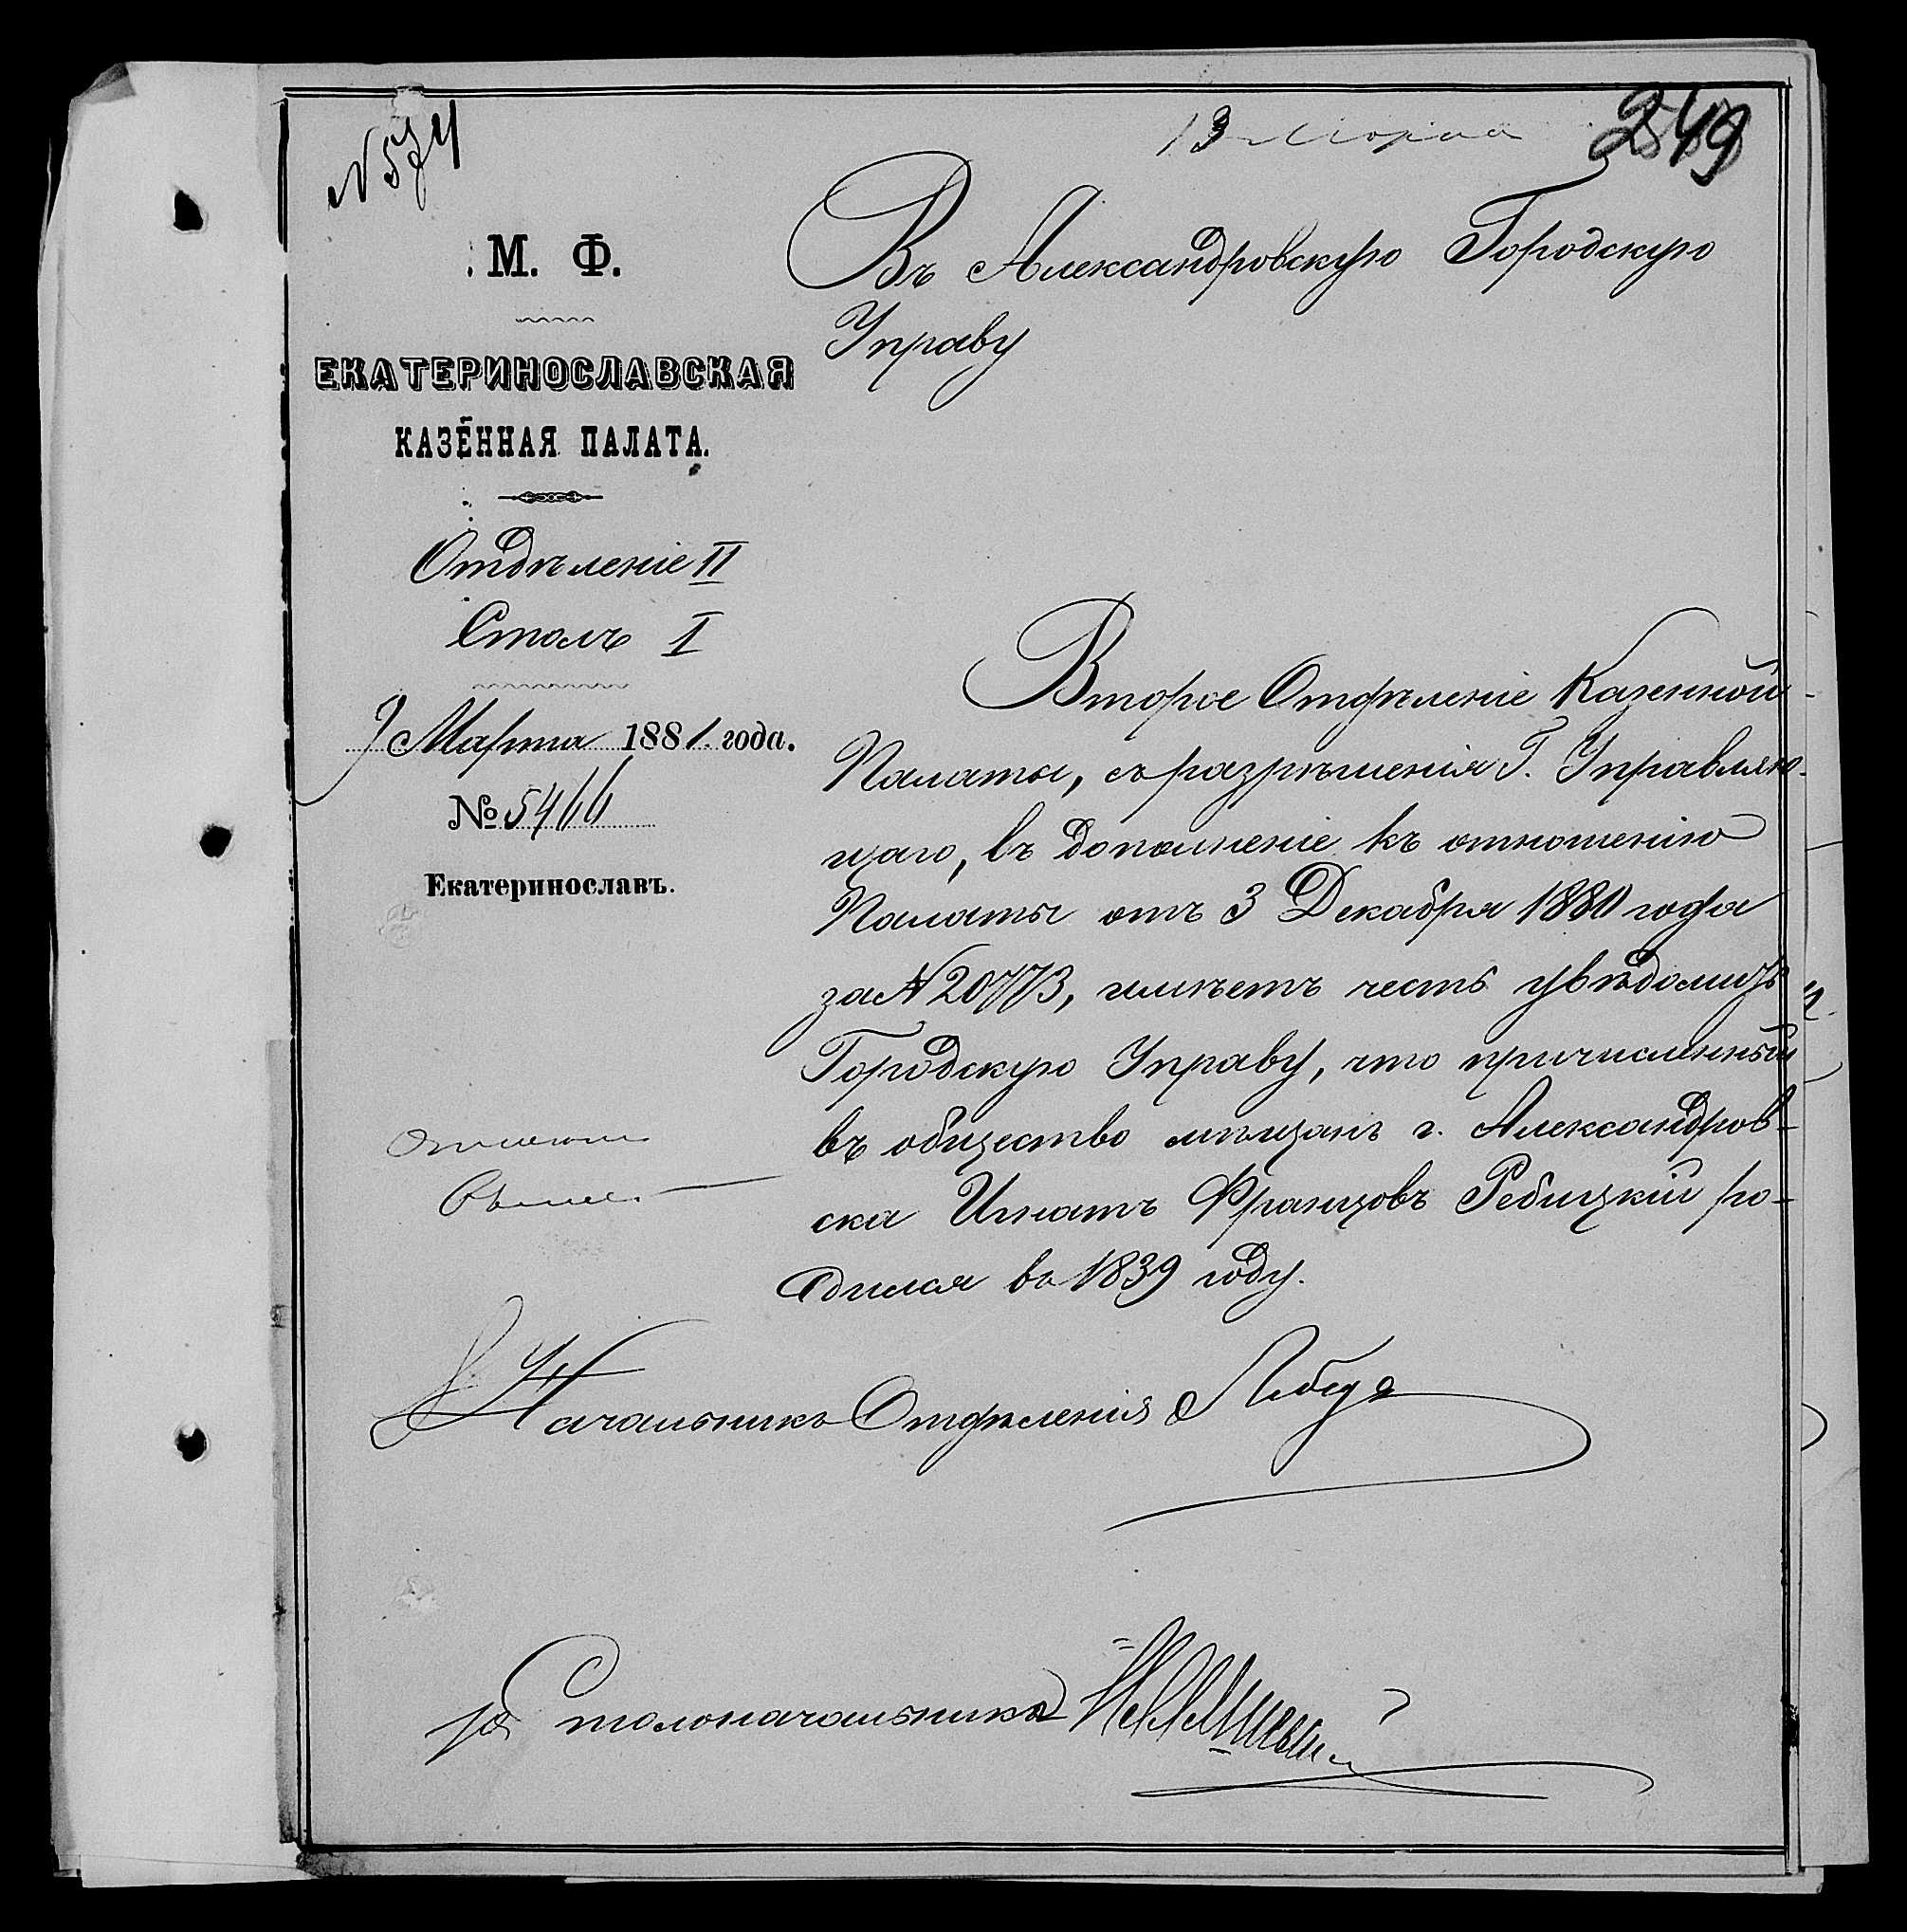 № 574
13 Марта
249
М. Ф.
ЕКАТЕРИНОСЛАВСКАЯ
КАЗЁННАЯ ПАЛАТА.
Отдѣленіе II
Столъ I
9 Марта 1881 года.
№ 5466
Екатеринославъ.
Въ Александровскую Городскую
Управу
Второе Отдѣленіе Казенной
Палаты, съ разрѣшенія Г. Управляю-
щаго, въ дополненіе къ отношенію
Палаты отъ 3 Декабря 1880 года
за № 20773, имѣетъ честь увѣдомить
Городскую Управу, что причисленный
въ общество мѣщанъ г. Александров-
ска Игнатъ Францовъ Ребицкій ро-
дился въ 1839 году.
Начальникъ Отдѣленія
За Столоначальника